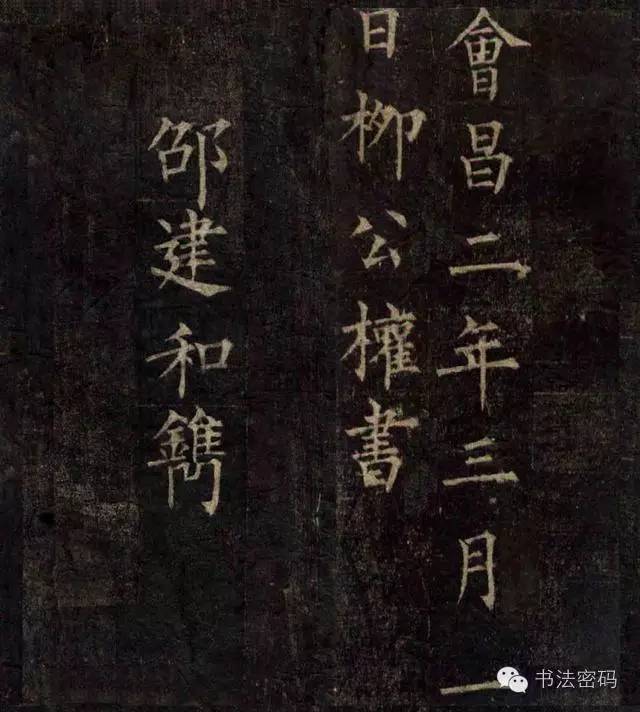 會昌二年三月一
日柳公權書
邵建和鐫
书法密码